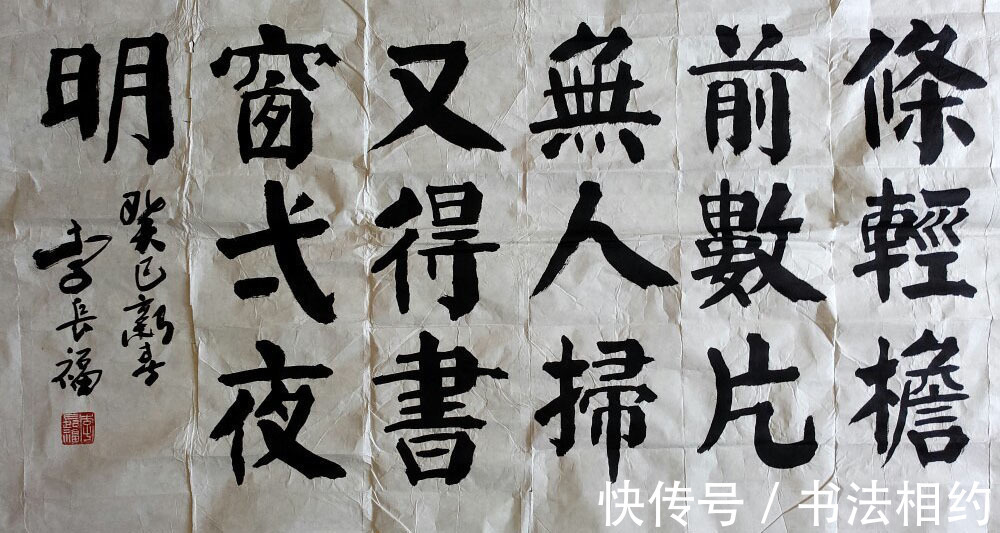 條輕檐
前數片
無人掃
又得書
窗弌夜
明
癸巳新春
李長福
快传号 / 书法相约